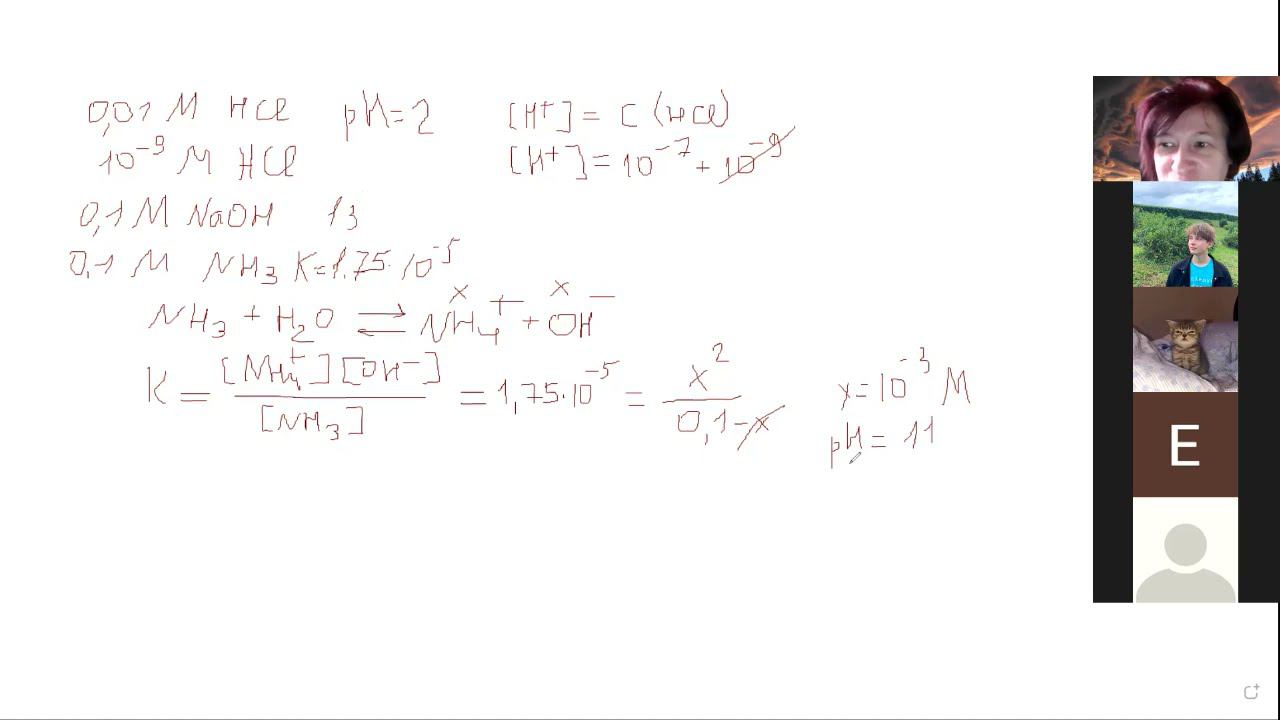 0,01 M HCl pH=2 [H⁺] = C (HCl)
10⁻⁹ M HCl [H⁺] = 10⁻⁷ + 10⁻⁹
0,1 M NaOH 13
0,1 M NH₃ K=1.75·10⁻⁵
x x
NH₃ + H₂O ⇌ NH₄⁺ + OH⁻
K = [NH₄⁺][OH⁻] / [NH₃] = 1,75·10⁻⁵ = x² / 0,1-x x=10⁻³ M
pH = 11
E